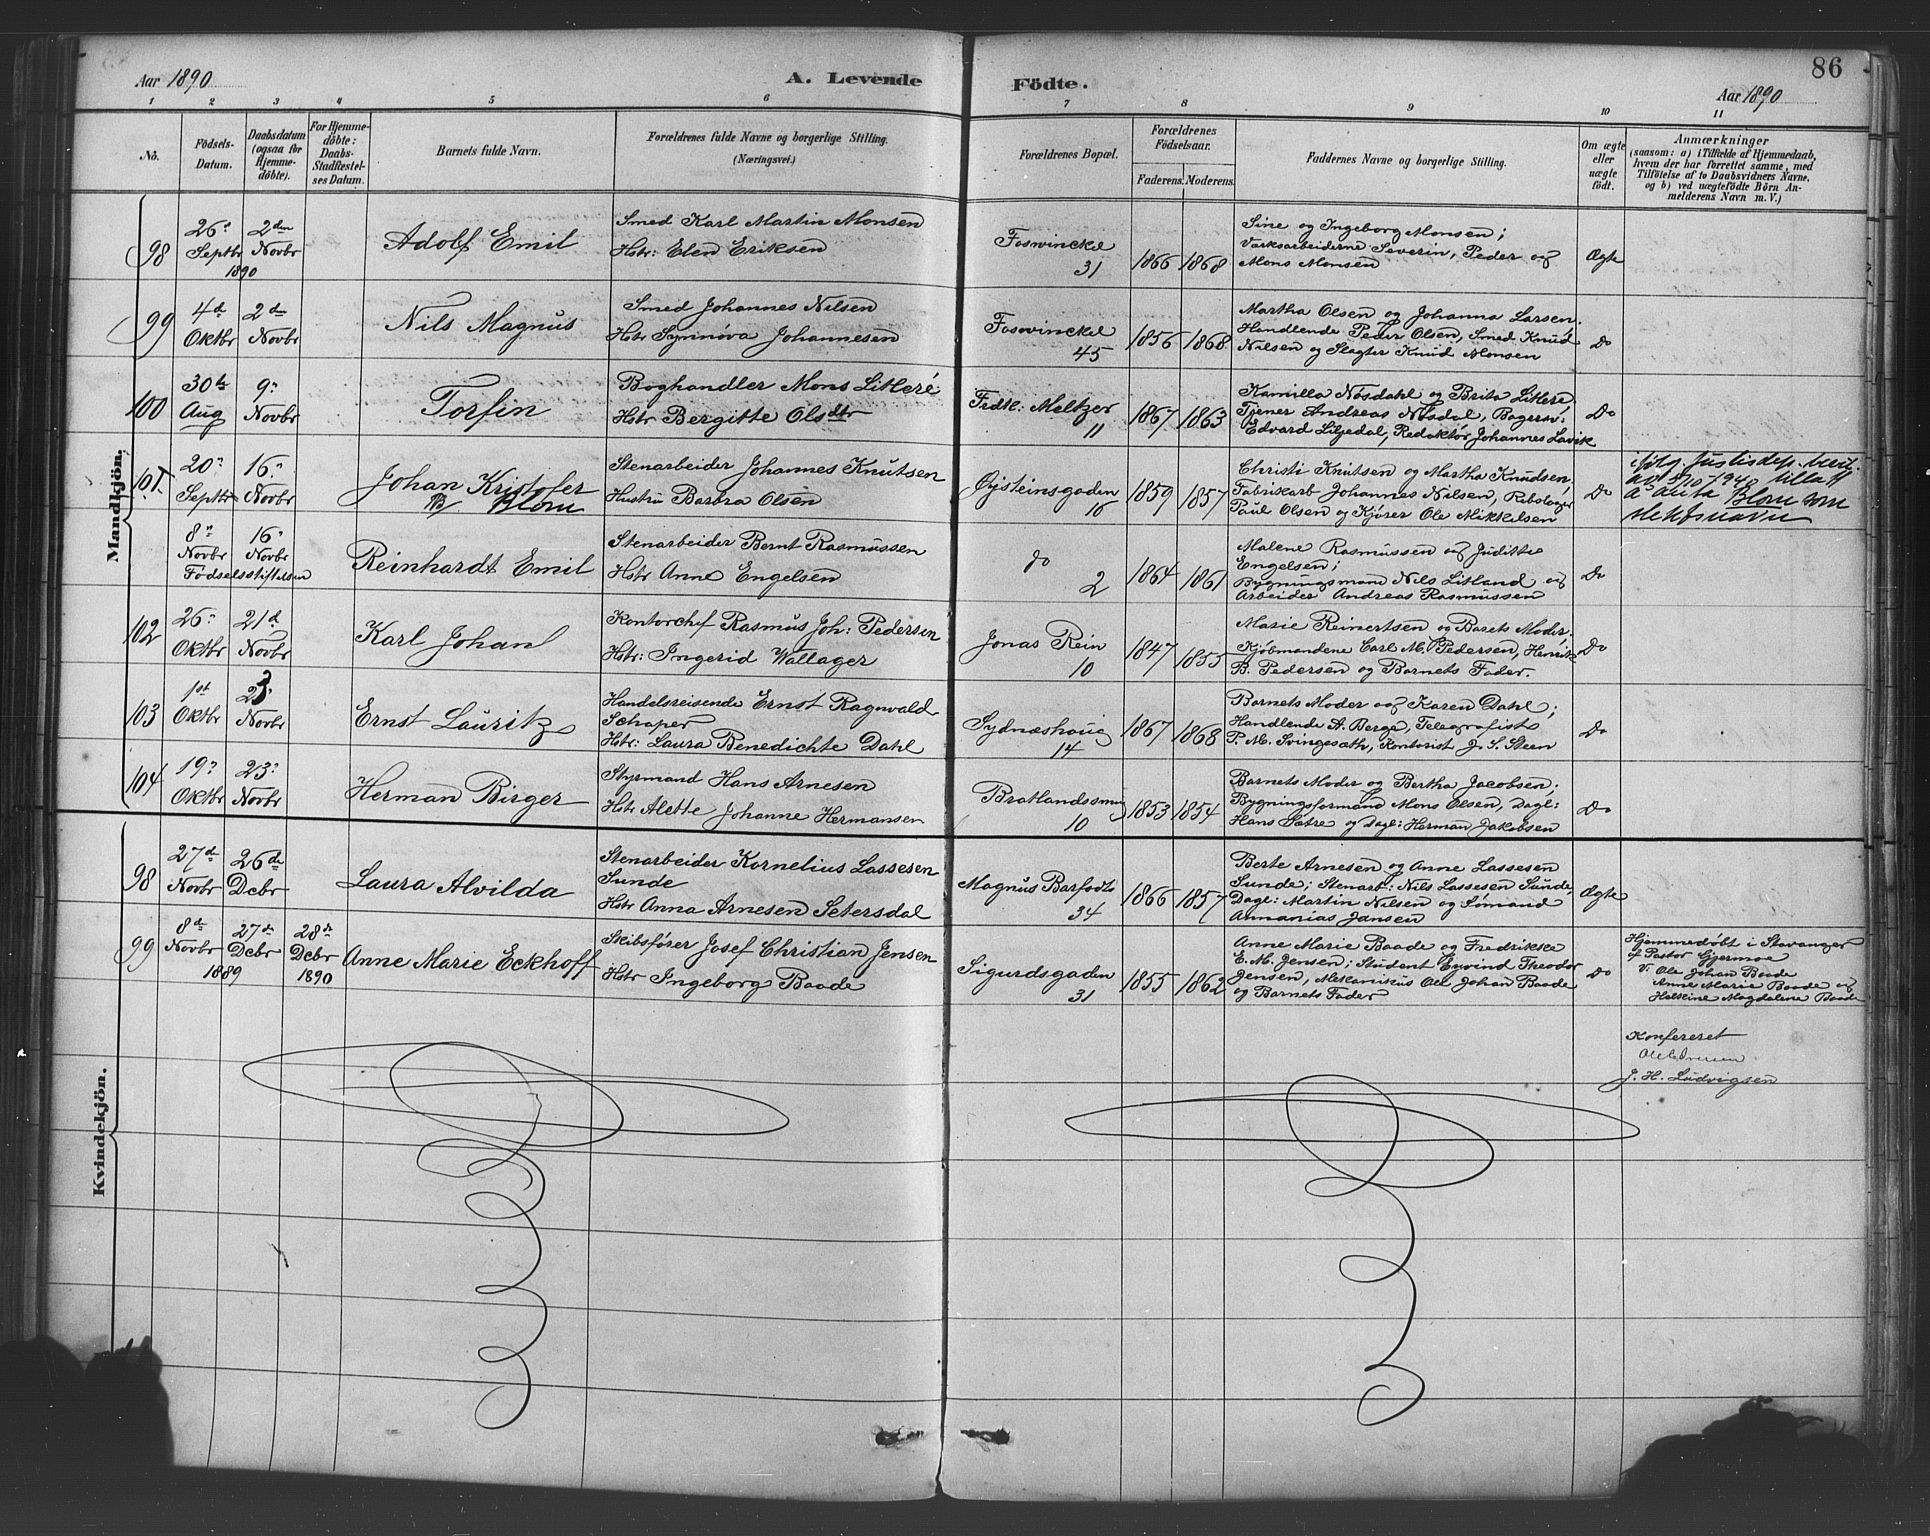 86
Aar 1890 A. Levende Födte. Aar 1890
1 2 3 4 5 6 7 8 9 10 11
No.
Födsels-
Datum.
Daabsdatum
(ogsaa for
Hjemme-
döbte).
For Hjemme-
döbte:
Daabs-
Stadfæstel-
ses Datum.
Barnets fulde Navn.
Forældrenes fulde Navne og borgerlige Stilling.
(Næringsvei.)
Forældrenes Bopæl.
Forældrenes
Födselsaar.
Faderens. Moderens.
Faddernes Navne og borgerlige Stilling.
Om ægte
eller
uægte
födt.
Anmærkninger
(saasom: a) i Tilfælde af Hjemmedaab,
hvem der har forrettet samme, med
Tilföielse af to Daabsvidners Navne,
og b) ved uægtefödte Börn An-
melderens Navn m. V.)
Mandkjön.
98
26.
Septbr
1890
2den
Novbr
Adolf Emil
Smed Karl Martin Monsen
Hstr: Elen Eriksen
Foswinckel
31
1866 1868
Sine og Ingeborg Monsen;
Værksarbeiderne Severin, Peder og
Mons Monsen
Ægte
99
4d
Oktbr
2d
Novbr
Nils Magnus
Smed Johannes Nilsen
Hstr Synnøva Johannesen
Foswinckel
45
1856 1868
Martha Olsen og Johanna Larsen.
Handlende Peder Olsen, Smed Knud
Nilsen og Slagter Knud Monsen
Do
100
30te
Aug
9.
Novbr
Torfin
Boghandler Mons Litleré
Hstr Bergitte Olsdtr
Fredk. Meltzer
11
1867 1863
Kamilla Nøsdahl og Brita Litleré
Tjener Andreas Nøsdal, Bagersv:
Edvard Liljedal, Redaktør Johannes Lavik
Do
101.
20.
Septbr
16.
Novbr
Johan Kristofer
Blom
Stenarbeider Johannes Knutsen
Hustru Barbra Olsen
Øisteinsgaden
16
1859 1857
Christi Knutsen og Martha Knudsen,
Fabrikarb Johannes Nilsen, Rebslager
Paul Olsen og Kjører Ole Mikkelsen
Do
ifølg Justisdep. bevil.
av 5/10 1940 tillatt
å anta Blom som
slektsnavn
8.
Novbr
16.
Novbr
Fødselsstiftelsen
Reinhardt Emil
Stenarbeider Bernt Rasmussen
Hstr Anne Engelsen
do
2
1864 1861
Malene Rasmussen og Juditte
Engelsen;
Bygningsmand Nils Litland og
Arbeider Andreas Rasmussen
Do
102
26.
Oktbr
21d
Novbr
Karl Johan
Kontorchef Rasmus Joh: Pedersen
Hstr: Ingerid Wallager
Jonas Rein
10
1847 1855
Marie Reinertsen og Barets Moder.
Kjøbmandene Carl M. Pedersen, Henrik
B. Pedersen og Barnets Fader.
Do
103
1st
Oktbr
23.
Novbr
Ernst Lauritz
Handelsreisende Ernst Ragnvald
Schaper
Hstr: Laura Benedichte Dahl
Sydnæshoug
14
1867 1868
Barnets Moder og Karen Dahl;
Handlende A. Berge, Telegrafist
P. M. Svingesæth, Kontorist J. S. Steen
Do
104
19.
Oktbr
23.
Novbr
Herman Birger
Styrmand Hans Arnesen
Hstr Alette Johanne Hermansen
Bratlandssmug
10
1853 1854
Barnets Moder og Bertha Jacobsen;
Bygningsformand Mons Olsen, Dagl:
Hans Sætre og Dagl: Herman Jakobsen
Do
Kvindekjön.
98
27de
Novbr
26de
Debr
Laura Alvilda
Stenarbeider Kornelius Lassesen
Sunde
Hstr Anna Arnesen Setersdal
Magnus Barfodts
34
1866 1857
Berte Arnesen og Anne Lassesen
Sunde; Stenarb: Nils Lassesen Sunde,
Dagl: Martin Nilsen og Sømand
Annanias Jansen
Ægte
99
8d
Novbr
27de
Debr
1889
28de
Debr
1890
Anne Marie Eckhoff
Skibsfører Josef Christian Jensen
Hstr Ingeborg Baade
Sigurdsgaden
31
1855 1862
Anne Marie Baade og Fredrikke
E. M. Jensen; Student Eyvind Theodor
Jensen, Mekanikus Ole Johan Baade
og Barnets Fader
Do
Hjemmedøbt i Stavanger
af Pastor Gjermoe
V. Ole Johan Baade
Anne Marie Baade og
Magdalene Baade
Konfereret
J. H. Ludvigsen